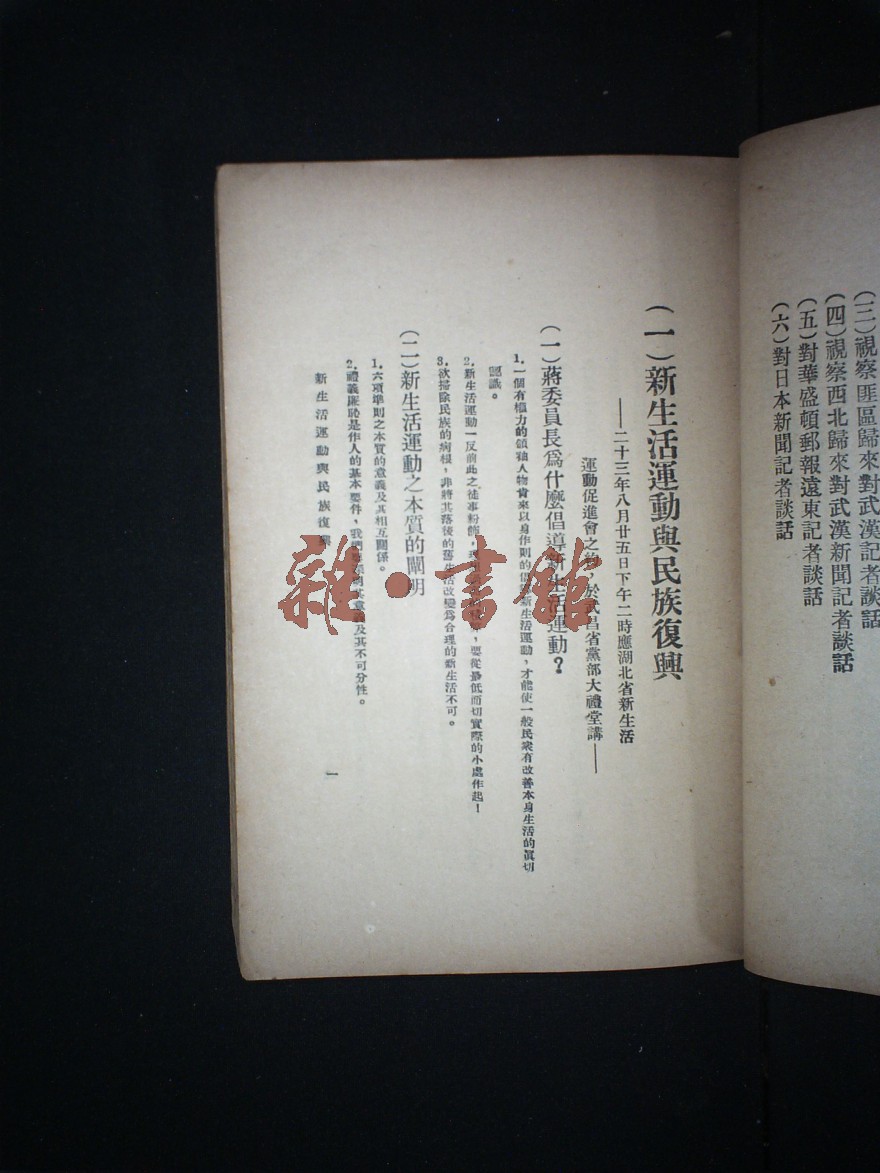 (三)視察匪區歸來對武漢記者談話
(四)視察西北歸來對武漢新聞記者談話
(五)對華盛頓郵報遠東記者談話
(六)對日本新聞記者談話
(一)新生活運動與民族復興
——二十三年八月廿五日下午二時應湖北省新生活
運動促進會之約,於武昌省黨部大禮堂講——
(一)蔣委員長爲什麼倡導新生活運動?
1.一個有權力的領袖人物肯來以身作則的倡導新生活運動,才能使一般民衆有改善本身生活的眞切
認識。
2.新生活運動一反前此之徒事粉飾,要從最低而切實際的小處作起!
3.欲掃除民族的病根,非將其落後的舊生活改變爲合理的新生活不可。
(二)新生活運動之本質的闡明
1.六項準則之本質的意義及其相互關係。
2.禮義廉恥是作人的基本要件,我們其意義及其不可分性。
新生活運動與民族復興
一
雜·書館